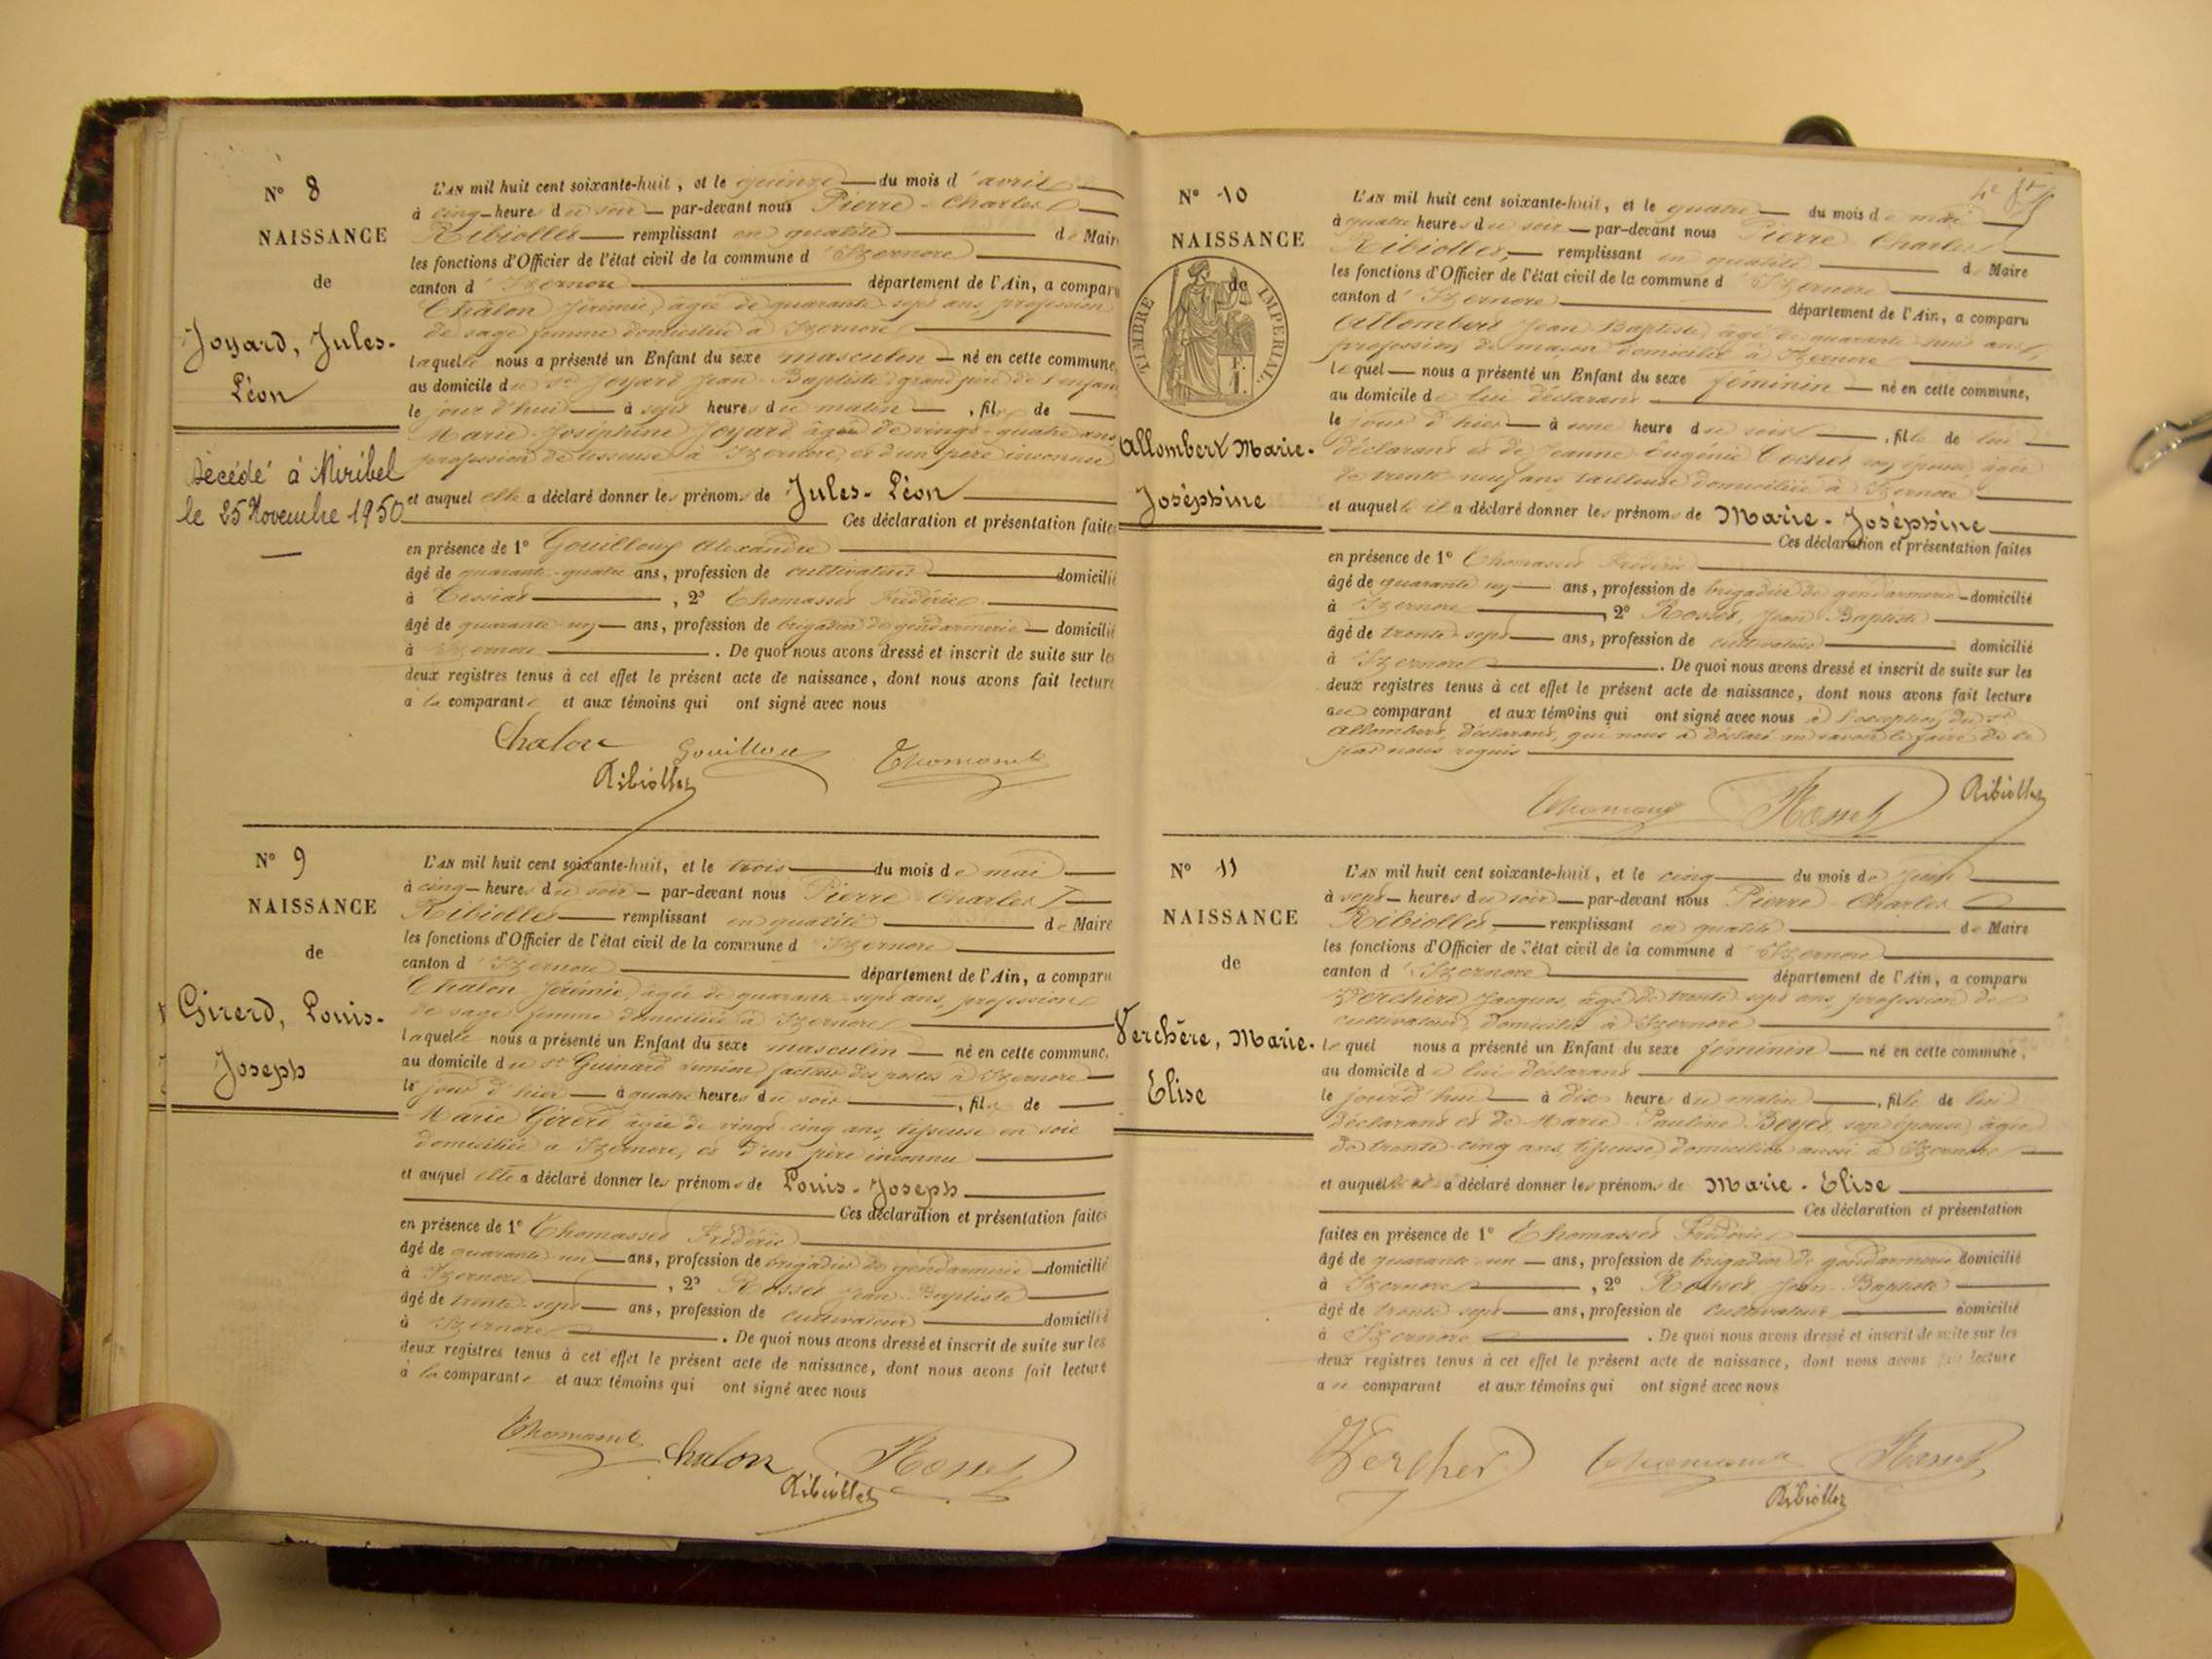 N° 8
NAISSANCE
de
Joyard, Jules-
Léon
Décédé à Miribel
le 25 Novembre 1950
L'AN mil huit cent soixante-huit, et le quinze du mois d'avril
à cinq heures du soir par-devant nous Pierre-Charles
Ribiollet remplissant en qualité de Maire
les fonctions d'Officier de l'état civil de la commune d'Izernore
canton d'Izernore département de l'Ain, a comparu
Chalon Jérémie, âgée de quarante sept ans, profession
de sage femme domiciliée à Izernore
laquelle nous a présenté un Enfant du sexe masculin né en cette commune,
au domicile du Sr Joyard Jean-Baptiste, grand père de l'enfant
le jour d'hui à sept heures du matin, fils de
Marie-Joséphine Joyard âgée de vingt-quatre ans
profession de tisseuse à Izernore, et d'un père inconnu
et auquel elle a déclaré donner les prénoms de Jules-Léon
Ces déclaration et présentation faites
en présence de 1° Gouilloux Alexandre
âgé de quarante-quatre ans, profession de cultivateur domicilié
à Tessiat, 2° Thomasset Frédéric
âgé de quarante-un ans, profession de brigadier de gendarmerie domicilié
à Izernore. De quoi nous avons dressé et inscrit de suite sur les
deux registres tenus à cet effet le présent acte de naissance, dont nous avons fait lecture
à la comparante et aux témoins qui ont signé avec nous
Chalon Gouilloux Thomasset
Ribiollet
N° 9
NAISSANCE
de
Girerd, Louis-
Joseph
L'AN mil huit cent soixante-huit, et le trois du mois de mai
à cinq heures du soir par-devant nous Pierre Charles
Ribiollet remplissant en qualité de Maire
les fonctions d'Officier de l'état civil de la commune d'Izernore
canton d'Izernore département de l'Ain, a comparu
Chalon Jérémie, âgée de quarante sept ans, profession
de sage-femme domiciliée à Izernore
laquelle nous a présenté un Enfant du sexe masculin né en cette commune,
au domicile du Sr Guinard Simeon, facteur des postes à Izernore
le jour d'hier à quatre heures du soir, fils de
Marie Girerd âgée de vingt-cinq ans, tisseuse en soie
domiciliée à Izernore, et d'un père inconnu
et auquel elle a déclaré donner les prénoms de Louis-Joseph
Ces déclaration et présentation faites
en présence de 1° Thomasset Frédéric
âgé de quarante un ans, profession de brigadier de gendarmerie domicilié
à Izernore, 2° Rosset Jean-Baptiste
âgé de trente-sept ans, profession de cultivateur domicilié
à Izernore. De quoi nous avons dressé et inscrit de suite sur les
deux registres tenus à cet effet le présent acte de naissance, dont nous avons fait lecture
à la comparante et aux témoins qui ont signé avec nous
Thomasset Chalon Rosset
Ribiollet
4e ft
N° 10
NAISSANCE
de
TIMBRE IMPERIAL.
Allombert Marie-
Joséphine
L'AN mil huit cent soixante-huit, et le quatre du mois de mai
à quatre heures du soir par-devant nous Pierre Charles
Ribiollet, remplissant en qualité de Maire
les fonctions d'Officier de l'état civil de la commune d'Izernore
canton d'Izernore département de l'Ain, a comparu
Allombert Jean-Baptiste, âgé de quarante-huit ans,
profession de maçon domicilié à Izernore
lequel nous a présenté un Enfant du sexe féminin né en cette commune,
au domicile de lui déclarant
le jour d'hier à une heure du soir, fille de lui
déclarant et de Jeanne Eugénie Cochet son épouse, âgée
de trente-neuf ans tailleuse domiciliée à Izernore
et auquelle il a déclaré donner les prénoms de Marie-Joséphine
Ces déclaration et présentation faites
en présence de 1° Thomasset Frédéric
âgé de quarante un ans, profession de brigadier de gendarmerie domicilié
à Izernore, 2° Rosset, Jean-Baptiste
âgé de trente sept ans, profession de cultivateur domicilié
à Izernore. De quoi nous avons dressé et inscrit de suite sur les
deux registres tenus à cet effet le présent acte de naissance, dont nous avons fait lecture
au comparant et aux témoins qui ont signé avec nous à l'exception du Sr
Allombert, déclarant, qui nous a déclaré ne savoir le faire de ce
par nous requis
Thomasset Rosset Ribiollet
N° 11
NAISSANCE
de
Verchère, Marie-
Elise
L'AN mil huit cent soixante-huit, et le cinq du mois de juin
à sept heures du soir par-devant nous Pierre-Charles
Ribiollet, remplissant en qualité de Maire
les fonctions d'Officier de l'état civil de la commune d'Izernore
canton d'Izernore département de l'Ain, a comparu
Verchère Jacques, âgé de trente sept ans, profession de
cultivateur, domicilié à Izernore
lequel nous a présenté un Enfant du sexe féminin né en cette commune,
au domicile de lui déclarant
le jourd'hui à dix heures du matin, fille de lui
déclarant et de Marie Pauline son épouse, âgée
de trente-cinq ans, tisseuse, domiciliée aussi à Izernore
et auquelle a déclaré donner les prénoms de Marie-Elise
Ces déclaration et présentation
faites en présence de 1° Thomasset Frédéric
âgé de quarante-un ans, profession de brigadier de gendarmerie domicilié
à Izernore, 2° Rosset, Jean-Baptiste
âgé de trente sept ans, profession de cultivateur domicilié
à Izernore. De quoi nous avons dressé et inscrit de suite sur les
deux registres tenus à cet effet le présent acte de naissance, dont nous avons fait lecture
au comparant et aux témoins qui ont signé avec nous
Vercher Thomasset Rosset
Ribiollet